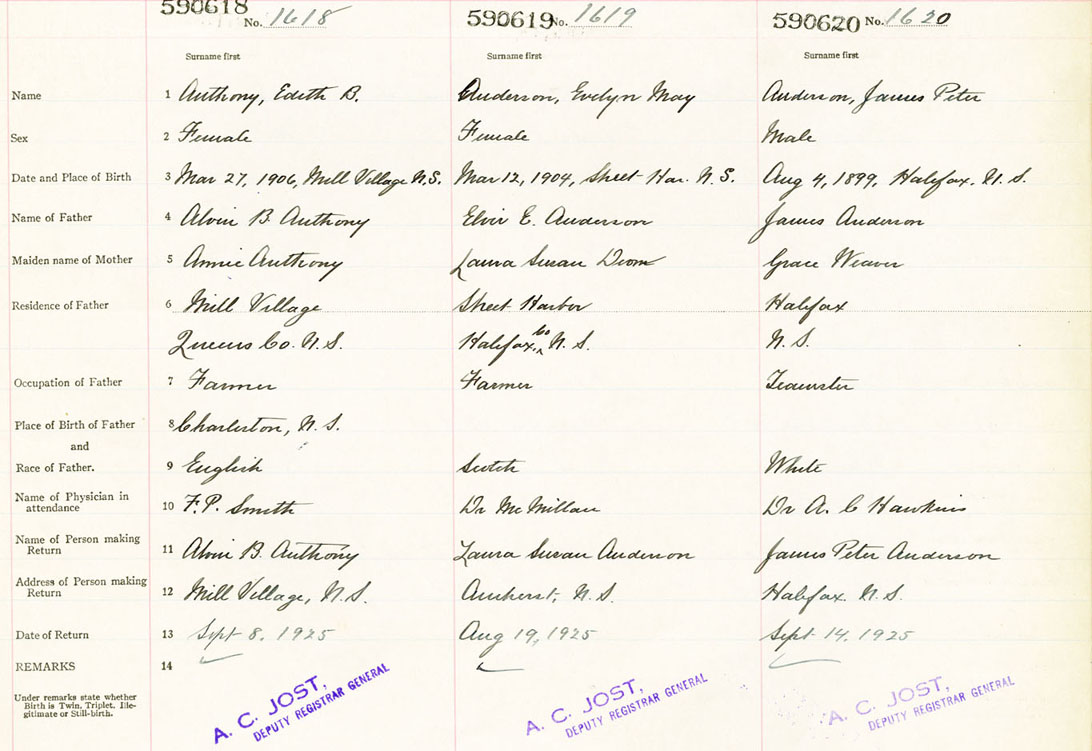 590618 No. 1618 590619 No. 1619 590620 No. 1620
Surname first Surname first Surname first
Name 1 Anthony, Edith B. Anderson, Evelyn May Anderson, James Peter
Sex 2 Female Female Male
Date and Place of Birth 3 Mar 27, 1906, Mill Village N.S. Mar 12, 1904, Sheet Har. N.S. Aug 4, 1899, Halifax. N.S.
Name of Father 4 Alvin B. Anthony E. Anderson James Anderson
Maiden name of Mother 5 Annie Anthony Laura Susan Grace Weaver
Residence of Father 6 Mill Village Sheet Harbor Halifax
Queens Co. N.S. Halifax Co N.S. N.S.
Occupation of Father 7 Farmer Farmer Teamster
Place of Birth of Father 8 Charleston, N.S.
and
Race of Father. 9 English Scotch White
Name of Physician in
attendance 10 F.P. Smith Dr McMillan Dr A. C Hawkins
Name of Person making
Return 11 Alvin B. Anthony Laura Susan Anderson James Peter Anderson
Address of Person making
Return 12 Mill Village, N.S. Amherst, N.S. Halifax. N.S.
Date of Return 13 Sept 8, 1925 Aug 19, 1925 Sept 14. 1925
REMARKS 14
Under remarks state whether
Birth is Twin, Triplet, Ille-
gitimate or Still-birth.
A. C. JOST, A. C. JOST, A. C. JOST,
DEPUTY REGISTRAR GENERAL DEPUTY REGISTRAR GENERAL DEPUTY REGISTRAR GENERAL